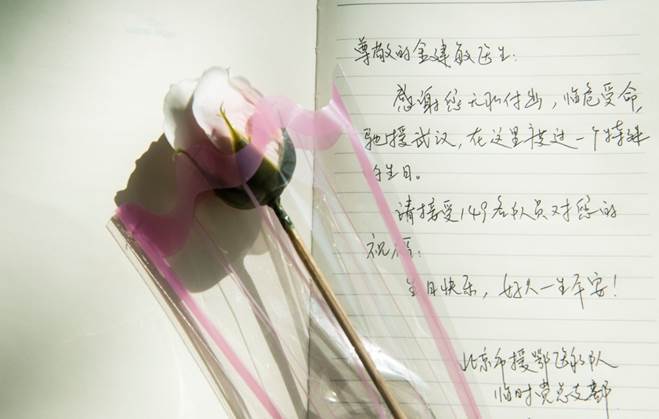 尊敬的金建敏医生:
感谢您无私付出,临危受命,
驰援武汉,在这里度过一个特殊
的生日。
请接受149名队员对您的
祝福:
生日快乐,好人一生平安!
北京市援鄂医疗队
临时党总支部